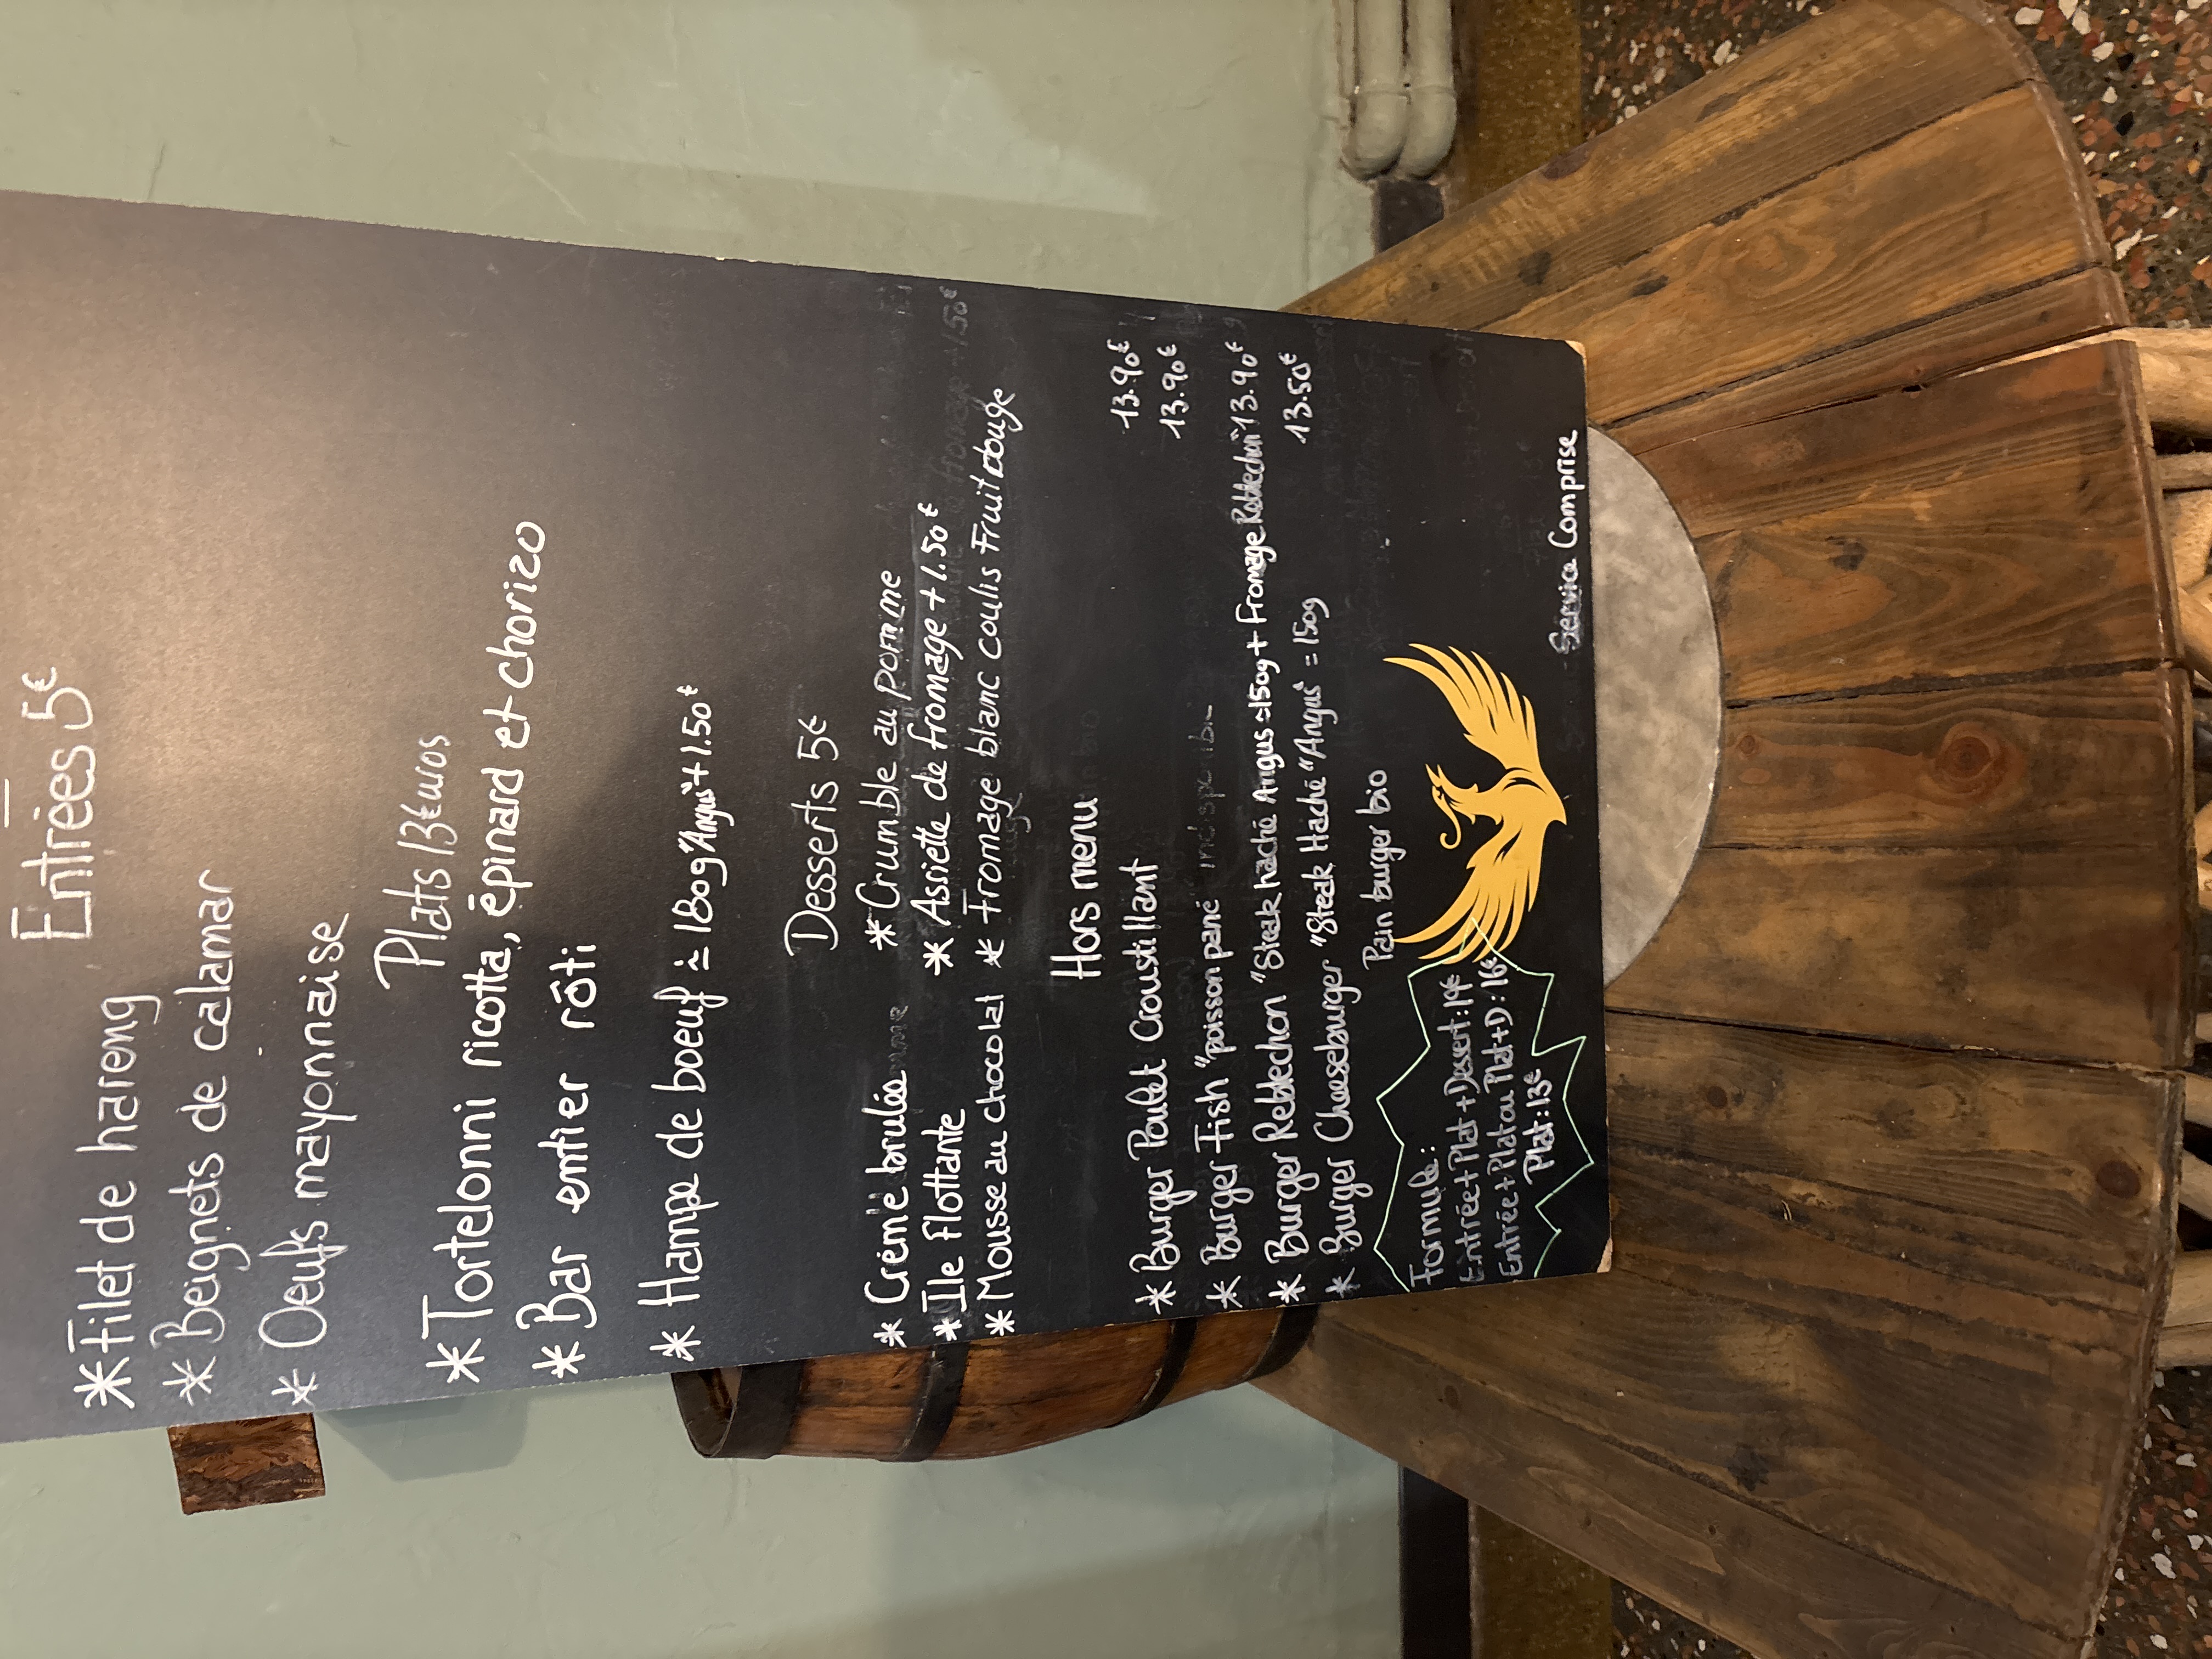 Entrées 5€
* Filet de hareng
* Beignets de calamar
* Oeufs mayonnaise
Plats 13€uros
* Tortelonni ricotta, épinard et chorizo
* Bar entier rôti
* Hampe de boeuf ≃ 180g "Angus" + 1.50€
Desserts 5€
* Crème brulée * Crumble au pomme
* Ile Flottante * Assiette de fromage + 1.50€
* Mousse au chocolat * Fromage blanc coulis Fruit rouge
Hors menu
* Burger Poulet Croustillant 13.90€
* Burger Fish "poisson pané" 13.90€
* Burger Reblechon "Steak haché Angus =150g + Fromage Reblechon" 13.90€
* Burger Cheeseburger "Steak Haché "Angus" = 150g 13.50€
Pain burger bio
Formule:
Entrée + Plat ou Plat + Dessert : 14€
Entrée + Plat + D : 16€
Plat : 13€
Service Comprise